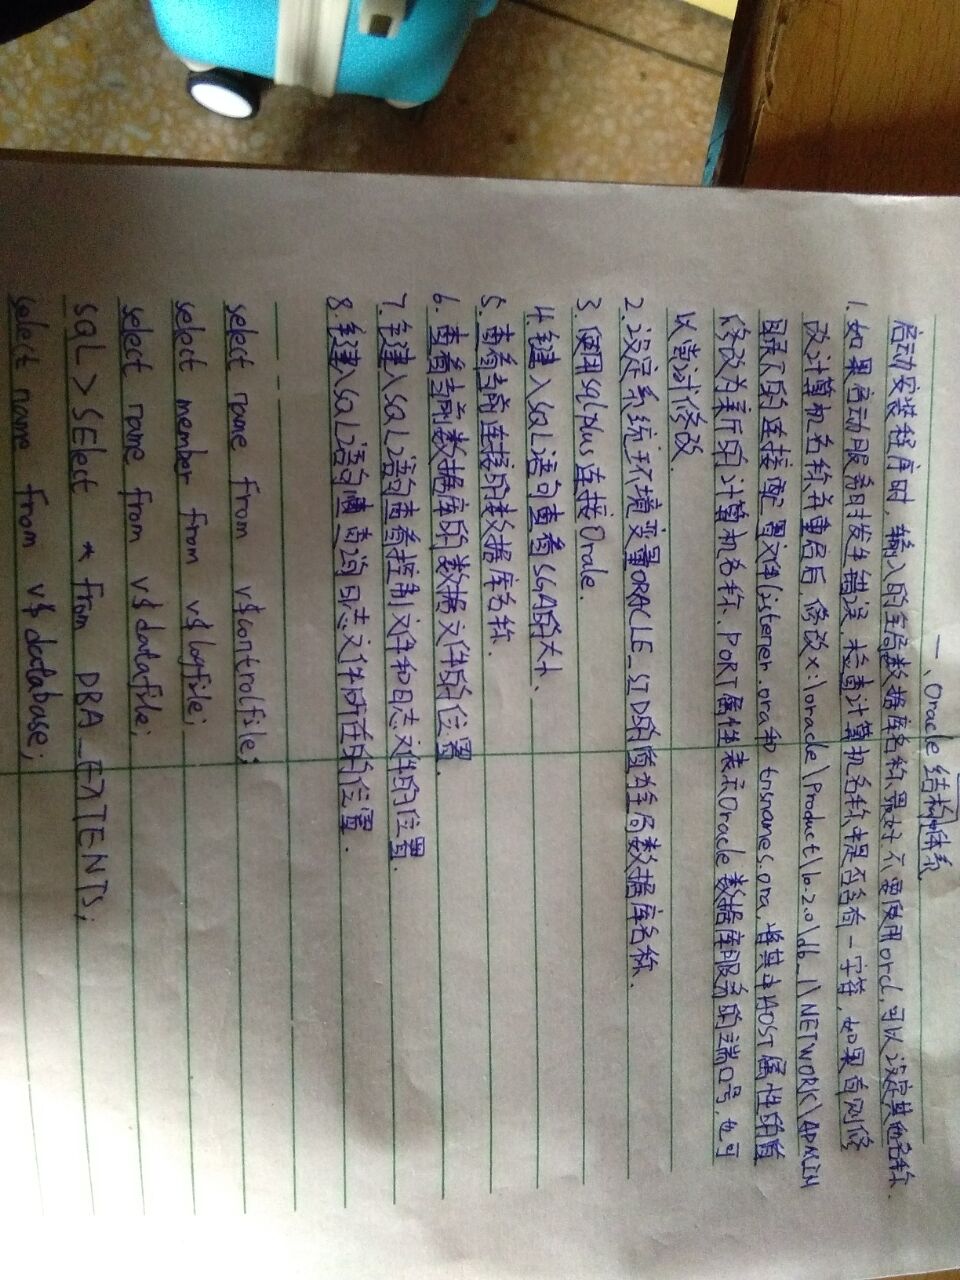 一、Oracle结构体系
启动安装程序时，输入的全局数据库名称最好不要使用orcl，可以设定其他名称.
1. 如果启动服务时发生错误，检查计算机名称中是否含有一字符，如果有则修
改计算机名称并重启后，修改x:\oracle\Product\10.2.0\db_1\NETWORK\ADMIN
目录下的连接配置文件listener.ora和 tnsnames.ora，将其中HOST属性的值
修改为新的计算机名称、PORT属性表示Oracle数据库服务的端口号，也可
以尝试修改.
2. 设定系统环境变量ORACLE_SID的值为全局数据库名称.
3. 使用sqlplus连接Orale.
4. 键入SQL语句查看SGA的大小、
5. 查看当前连接的数据库名称.
6. 查看当前数据库的数据文件的位置.
7. 键入SQL语句查看控制文件和日志文件的位置.
8. 键入SQL语句查询日志文件所在的位置.
select name from v$controlfile;
select member from v$logfile;
select name from v$datafile;
SQL > SElect * from DBA_EXTENTS;
select name from v$database;